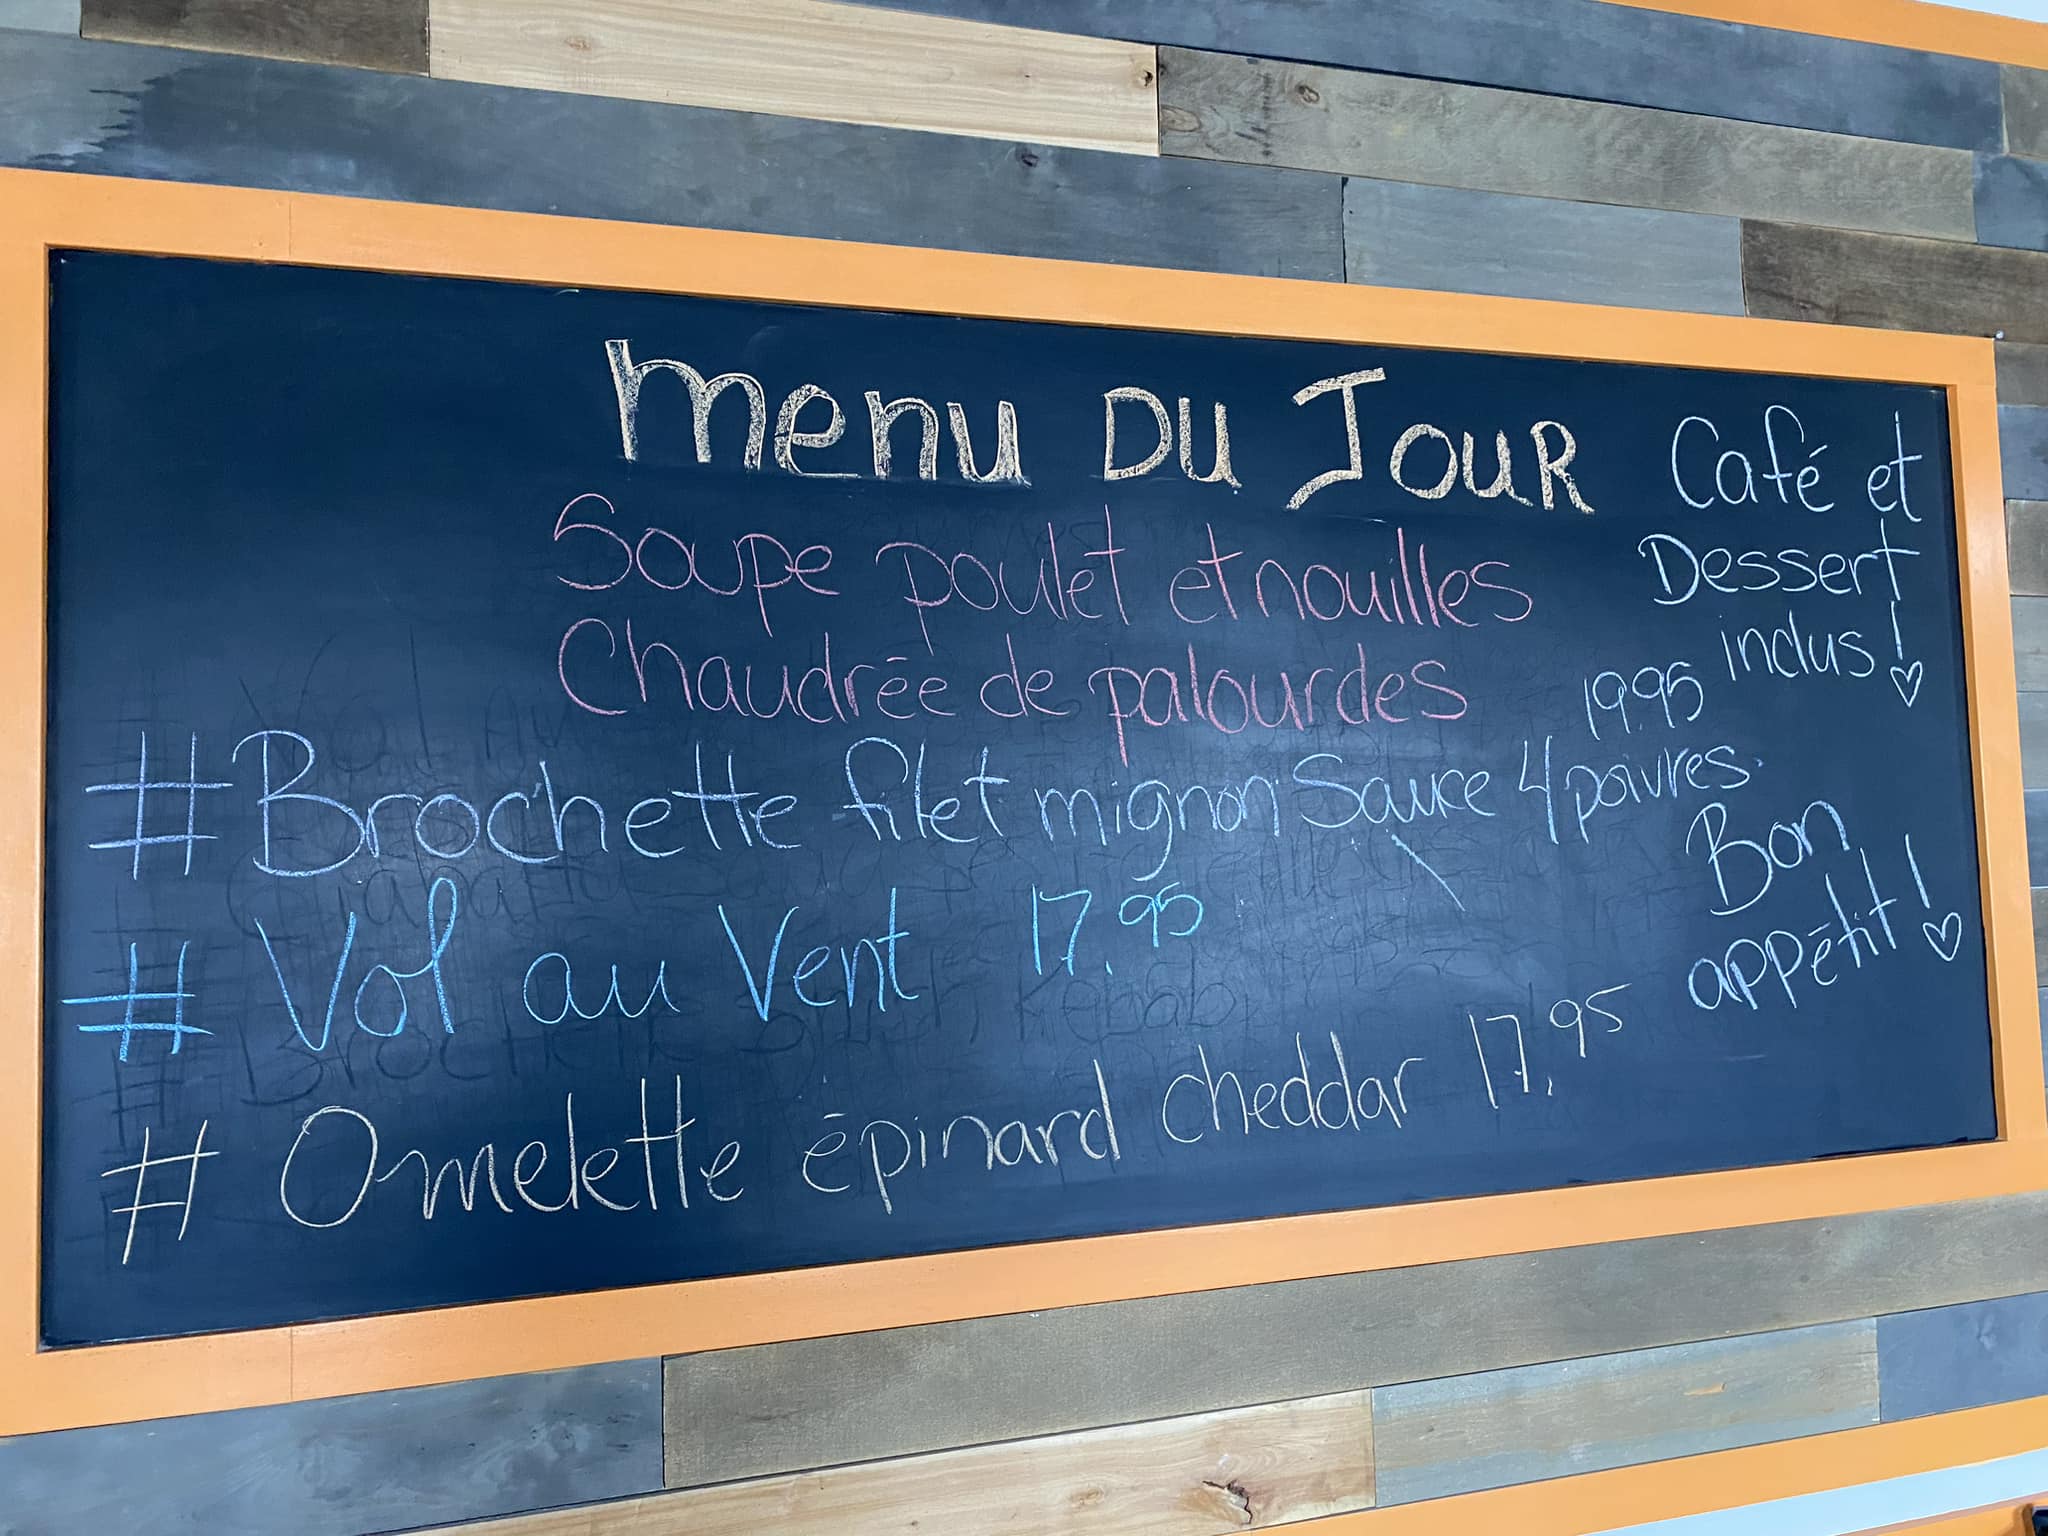 menu DU JOUR
Soupe poulet et nouilles
Chaudrée de palourdes
Café et
Dessert
inclus!
19.95
# Brochette filet mignon Sauce 4 poivres.
# Vol au Vent 17.95
# Omelette épinard cheddar 17.95
Bon
appétit!